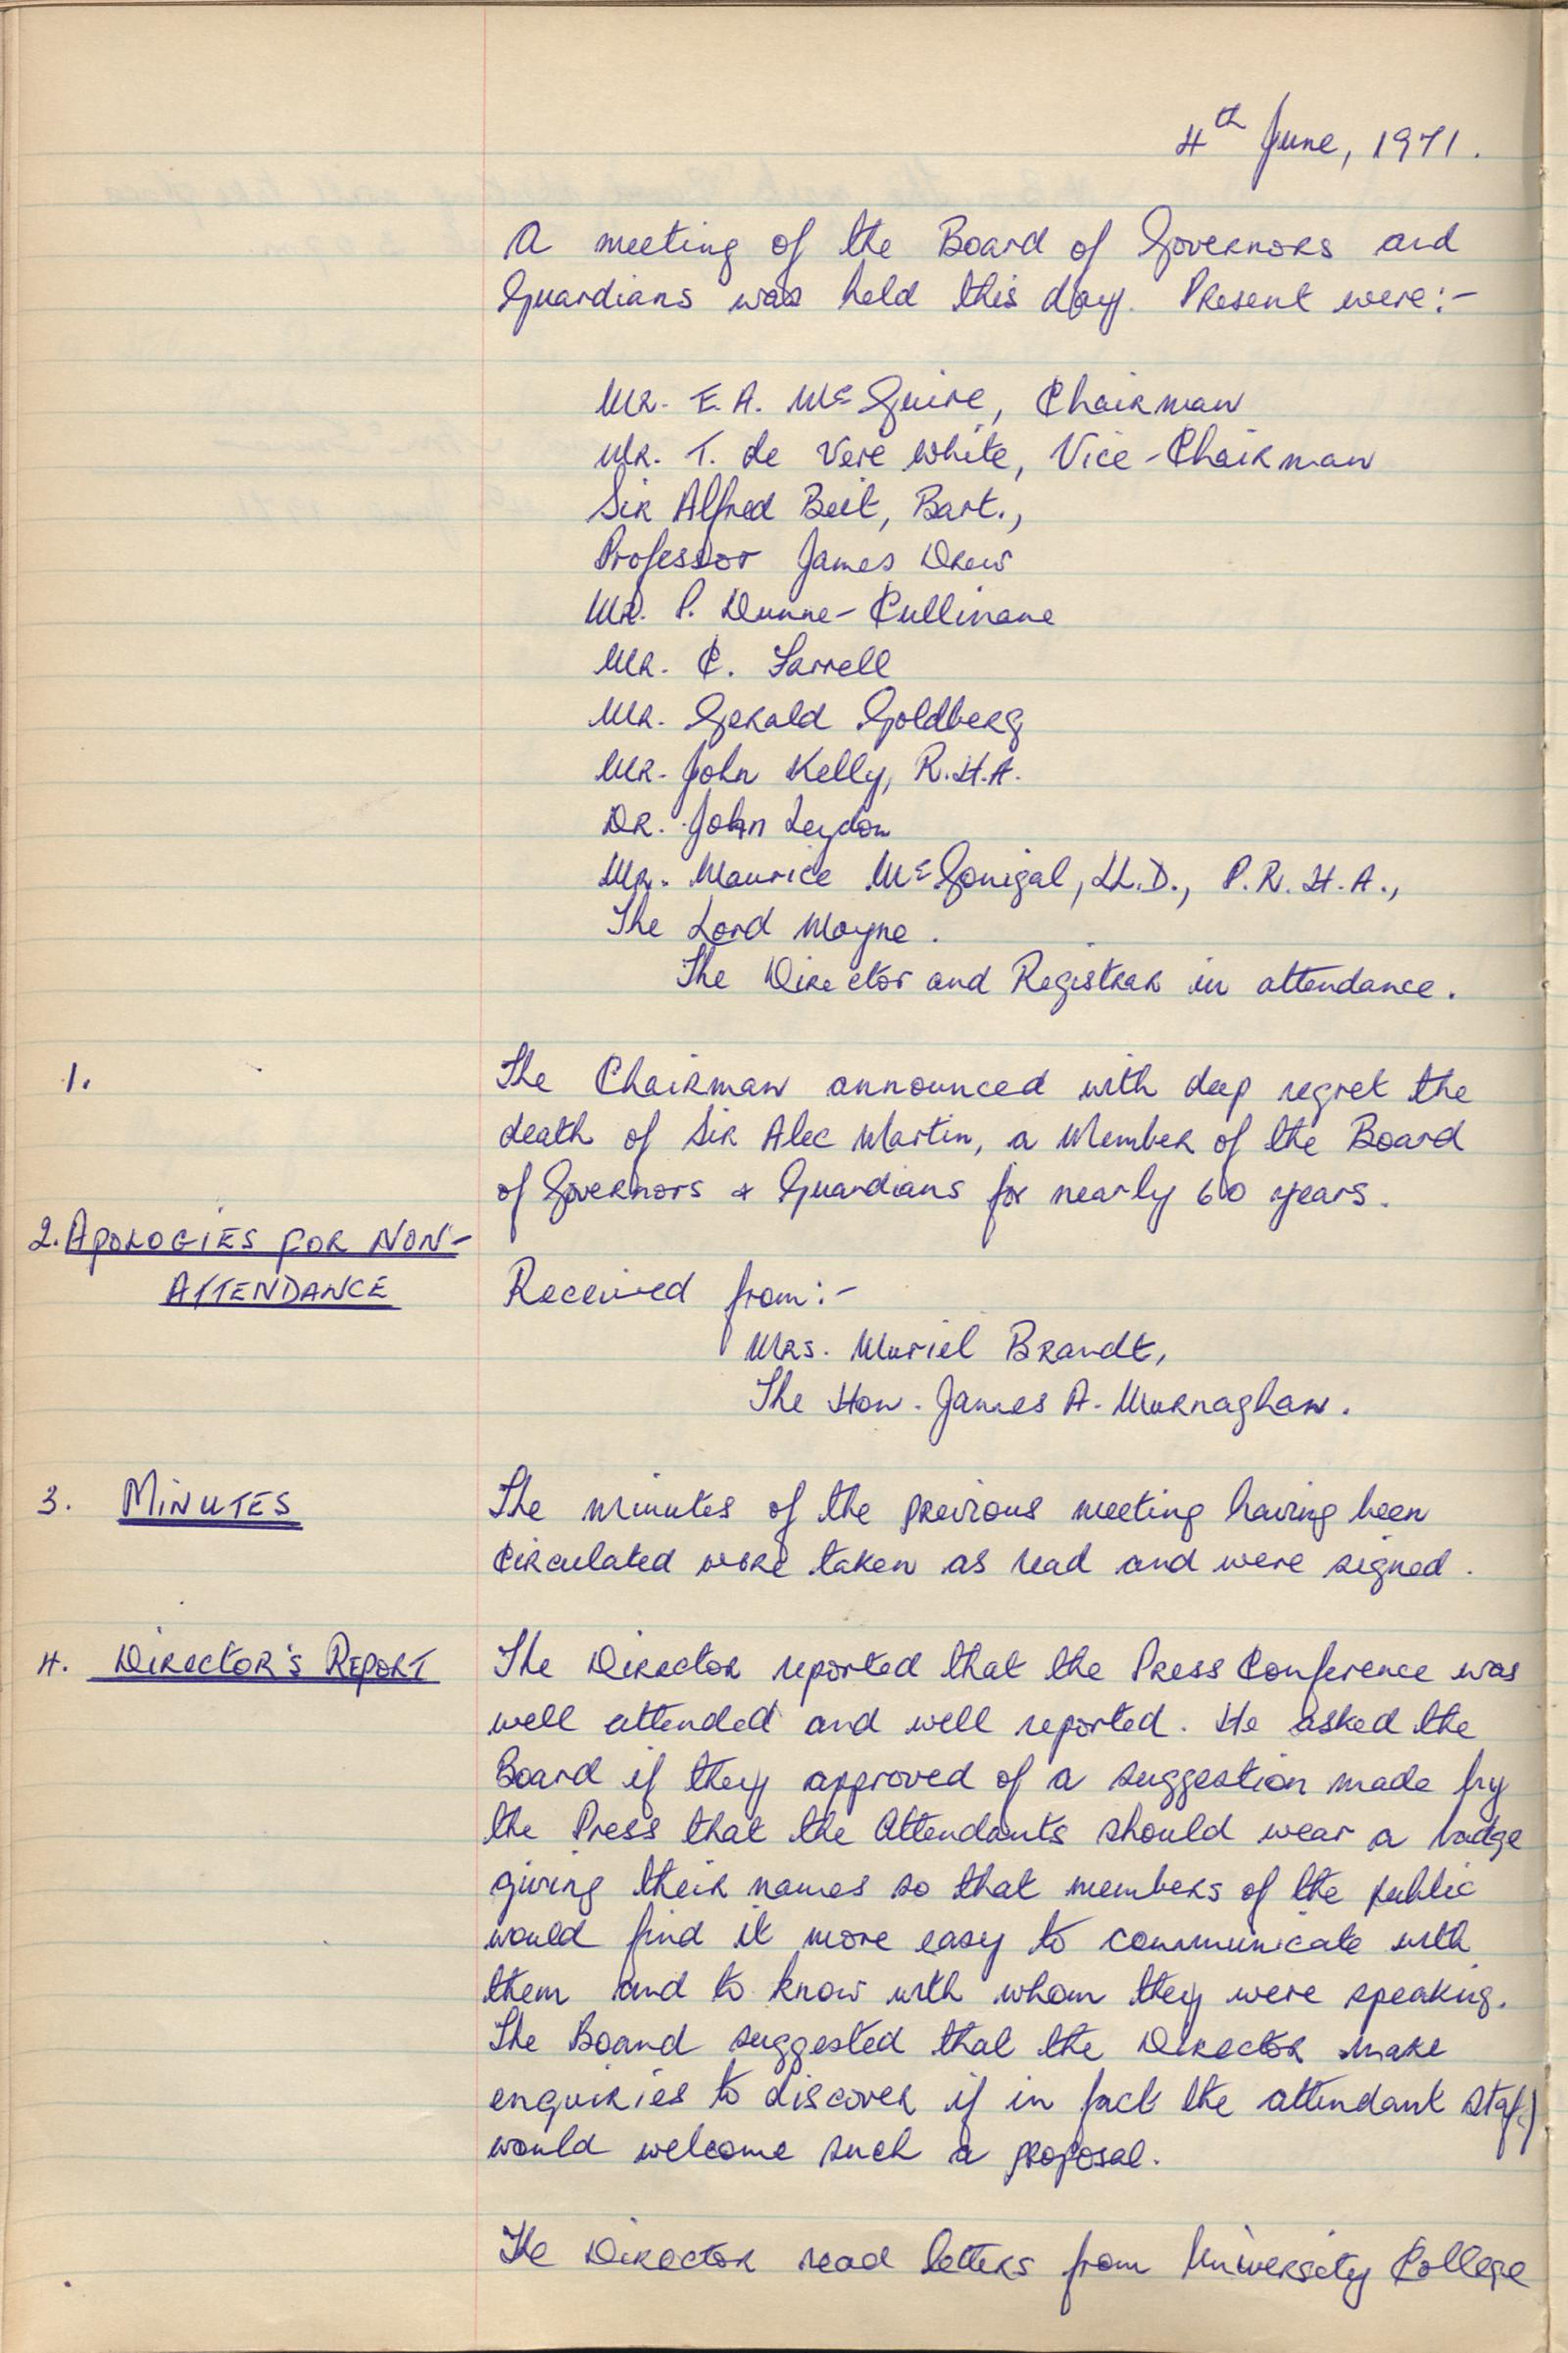 4th June, 1971.
A meeting of the Board of Governors and
Guardians was held this day. Present were:-
Mr. E. A. McGuire, Chairman
Mr. T. de Vere White, Vice-Chairman
Sir Alfred Beit, Bart.,
Professor James Drew
Mr. P. Dunne-Cullinane
Mr. C. Farrell
Mr. Gerald Goldberg
Mr. John Kelly, R.H.A.
Dr. John Leydon
Mr. Maurice McGonigal, LL.D., P.R.H.A.,
The Lord Moyne.
The Director and Registrar in attendance.
1. The Chairman announced with deep regret the
death of Sir Alec Martin, a Member of the Board
of Governors & Guardians for nearly 60 years.
2. APOLOGIES FOR NON-
ATTENDANCE Received from:-
Mrs. Muriel Brandt,
The Hon. James A. Murnaghan.
3. MINUTES The minutes of the previous meeting having been
circulated were taken as read and were signed.
4. DIRECTOR'S REPORT The Director reported that the Press Conference was
well attended and well reported. He asked the
Board if they approved of a suggestion made by
the Press that the Attendants should wear a badge
giving their names so that members of the public
would find it more easy to communicate with
them and to know with whom they were speaking.
The Board suggested that the Director make
enquiries to discover if in fact the attendant staff
would welcome such a proposal.
The Director read letters from University College